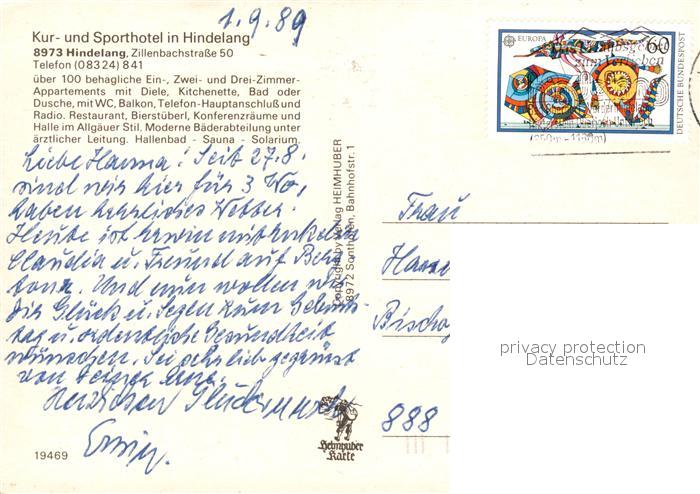 1.9.89
Kur- und Sporthotel in Hindelang
8973 Hindelang, Zillenbachstraße 50
Telefon (08324) 841
über 100 behagliche Ein-, Zwei- und Drei-Zimmer-
Appartements mit Diele, Kitchenette, Bad oder
Dusche, mit WC, Balkon, Telefon-Hauptanschluß und
Radio. Restaurant, Bierstüberl, Konferenzräume und
Halle im Allgäuer Stil. Moderne Bäderabteilung unter
ärztlicher Leitung. Hallenbad - Sauna - Solarium.
Liebe Hanna! Seit 27.8.
sind wir hier für 3 Wo,
haben herrliches Wetter.
Heute ist Erwin mit
Claudia u. Freund auf
Und nun wollen wir
Dir Glück u. Segen zum Geburts-
tag u. ordentliche Gesundheit
wünschen. Sei sehr lieb gegrüsst
von Deiner
Herzlichen Glückwunsch
Erwin.
19469
Copyright by Verlag HEIMHUBER
8972 Sonthofen, Bahnhofstr. 1
Heimhuber
Karte
EUROPA 60
DEUTSCHE BUNDESPOST
zum Verlieben
Frau
Hann
Bischo
888
privacy protection
Datenschutz